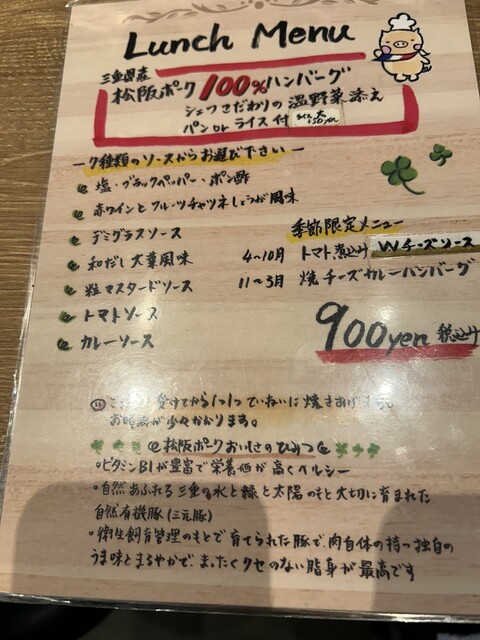 Lunch Menu
三重県産
松阪ポーク100%ハンバーグ
シェフこだわりの温野菜添え
パン or ライス付 ライス大 +50yen
ー7種類のソースからお選び下さいー
塩・ブラックペッパー・ポン酢
赤ワインとフルーツチャツネしょうが風味
デミグラスソース
和だし大葉風味
粒マスタードソース
トマトソース
カレーソース
季節限定メニュー
4〜10月 トマト煮込み Wチーズソース
11〜3月 焼チーズカレーハンバーグ
900yen 税込み
受けてから1つ1つていねいに焼きあげます。
お時間が少々かかります。
松阪ポークおいしさのひみつ
・ビタミンB1が豊富で栄養価が高くヘルシー
・自然あふれる三重の水と緑と太陽のもと大切に育まれた
自然有機豚(三元豚)
・衛生飼育管理のもとで育てられた豚で、肉自体の持つ独自の
うま味とまろやかで、まったくクセのない脂身が最高です